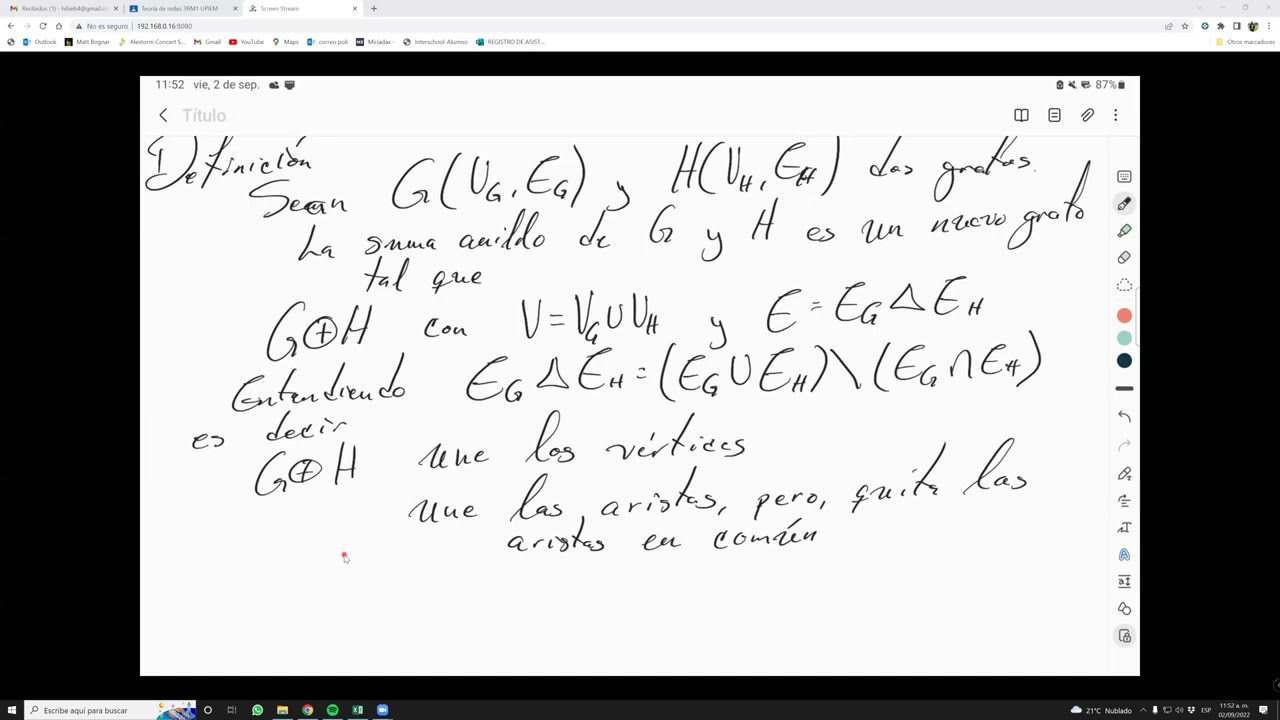 Recibidos (1) - hibels4@gmail.co
Teoría de redes 3RM1 UPIEM
Screen Stream
No es seguro | 192.168.0.16:8080
Outlook Matt Bognar Alestorm Concert S... Gmail YouTube Maps correo poli Miríadax - Interschool-Alumno REGISTRO DE ASIST... Otros marcadores
11:52 vie, 2 de sep. 87%
Título
Definición
Sean G(V_G, E_G) y H(V_H, E_H) dos grafos.
La suma anillo de G y H es un nuevo grafo
tal que
G⊕H con V = V_G ∪ V_H y E = E_G △ E_H
Entendiendo E_G △ E_H = (E_G ∪ E_H) \ (E_G ∩ E_H)
es decir
G⊕H une los vértices
une las aristas, pero, quita las
aristas en común
Escribe aquí para buscar
21°C Nublado ESP 11:52 a. m.
02/09/2022